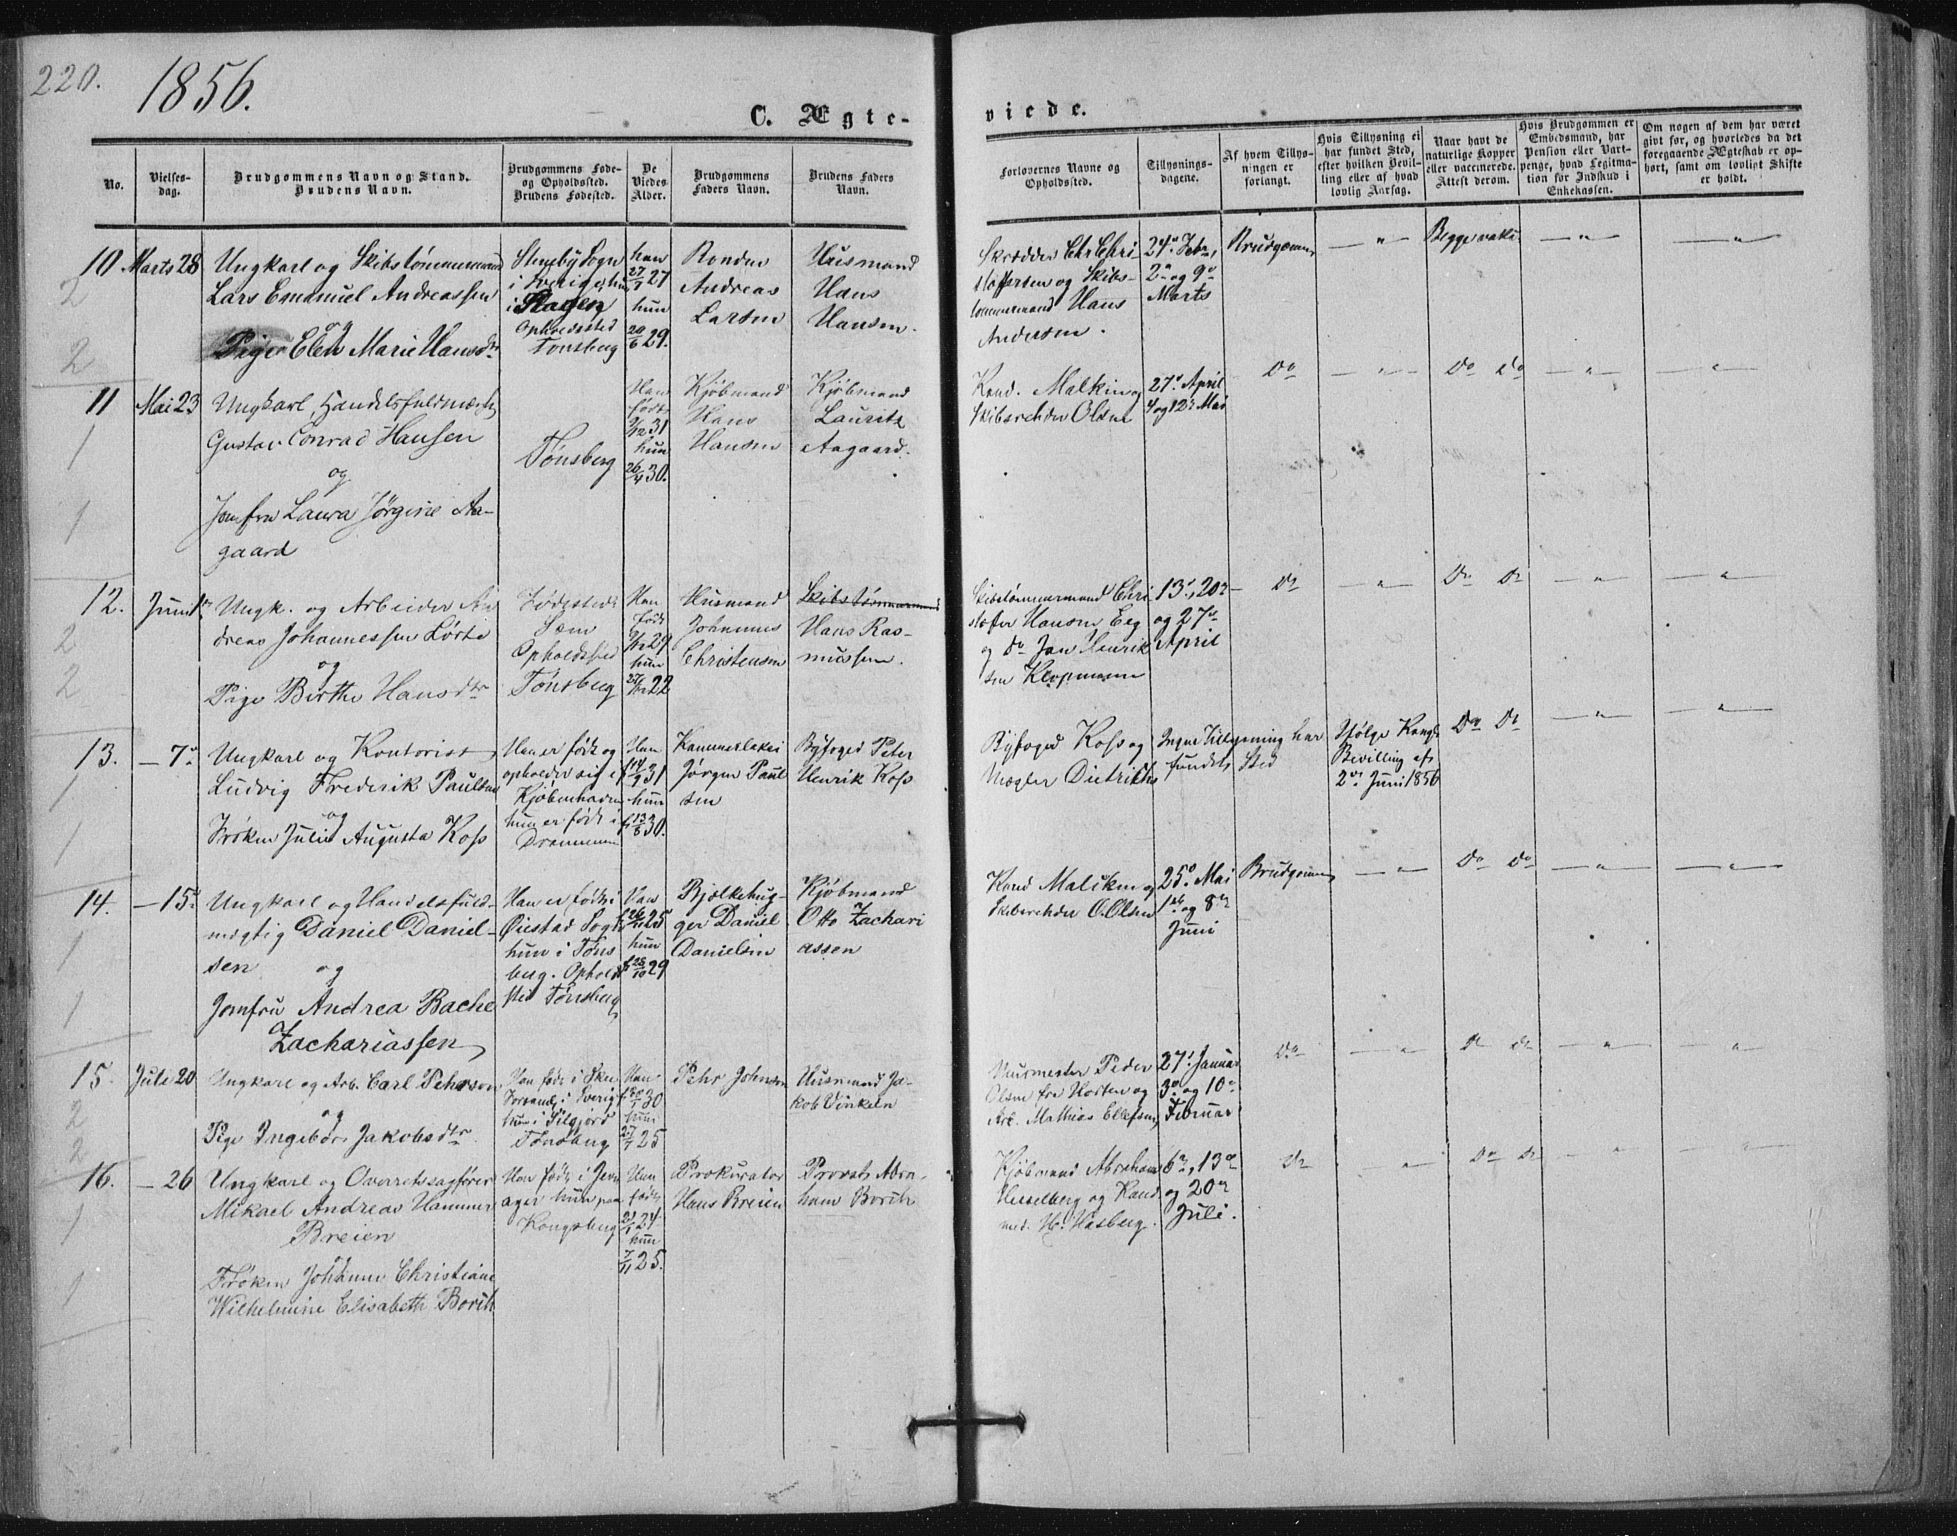 220.
1856.
C. Ægte-
viede.
No.
Vielses-
dag.
Brudgommens Navn og Stand.
Brudens Navn.
Brudgommens Føde-
og Opholdssted.
Brudens Fødested.
De
Viedes
Alder.
Brudgommens
Faders Navn.
Brudens Faders
Navn.
Forlovernes Navne og
Opholdssted.
Tillysnings-
dagene.
Af hvem Tillys-
ningen er
forlangt.
Hvis Tillysning ei
har fundet Sted,
efter hvilken Bevil-
ling eller af hvad
lovlig Aarsag.
Naar havt de
naturlige Kopper
eller vaccinerede.
Attest derom.
Hvis Brudgommen er
Embedsmand, har
Pension eller Vart-
penge, hvad Legitma-
tion for Indskud i
Enkekassen.
Om nogen af dem har været
gift før, og hvorledes da det
foregaaende Ægteskab er op-
hørt, samt om lovligt Skifte
er holdt.
10
Marts 28
Ungkarl og Skibstømmermand
Lars Emanuel Andreassen
og
Pige Elen Marie Hansdtr
i Sverige, hun
Opholdssted
Tønsberg
han
27/1 27
hun
20/6 29.
Andreas
Larsen
Husmand
Hans
Hansen.
Skrædder Chr. Chri
stoffersen og Skibs-
tømmermand Hans
Andersen.
24de Febr,
2den og 9de
Marts
Brudgommen
Begge vakc.
11
Mai 23
Ungkarl, Handelsfuldmægtig
Gustav Conrad Hansen
og
Jomfru Laura Jørgine Aa-
gaard
Tønsberg
Han
født
31
hun
26/4 30.
Kjøbmand
Hans
Hansen
Kjøbmand
Lauritz
Aagaard.
Kand. Malkin og
Skibsreder Olsen
27de April
4 og 12te Mai
Do
Do Do
12.
Juni 1ste
Ungk. og Arbeider An
dreas Johannessen Lørte
og
Pige Birthe Hansdtr
Fødested:
Sem
Opholdssted
Tønsberg
Han
født
29
hun
22
Husmand
Johannes
Christensen
Skibstømmermand
Hans Ras-
mussen.
Skibstømmermand Chri
stoffer Hansen Eeg
og do Jan Henrik
sen Klopmann
13de, 20de
og 27de
April
Do
Do Do
13.
7de
Ungkarl og Kontorist
Ludvig Frederik Paulsen
og
Frøken Julie Augusta Koss
Han er født og
opholder sig i
Kjøbenhavn
hun er født i
Drammen
Han
14/9 31
hun
13/8 30.
Kammerlakei
Jørgen Paul
sen
Byfoged Peter
Henrik Koss
Byfoged Koss og
Mægler Dietrichs
Ingen Tillysning har
fundet Sted
Ifølge Kongl.
Bevilling af
2den Juni 1856
Do Do
14.
15de
Ungkarl og Handelsfuld-
mægtig Daniel Daniel-
sen og
Jomfru Andrea Bache
Zachariassen
Han er født i
Øiestad Sogn
hun i Tøns
berg. Ophold
sted Tønsberg
Han
25
hun
28/10 29
Bjelkehug-
ger Daniel
Danielsen
Kjøbmand
Otto Zachari
assen
Kand Malikin og
Skibsreder O. Olsen
25de Mai
1ste og 8de
Juni
Brudgommen
Do Do
15.
Juli 20
Ungkarl og Arb. Carl Pehrson
og
Pige Ingebor Jakobsdtr
Han født i
i Sverig
hun i Silgjord
Tønsberg
Han
30
hun
27/1 25
Pehr Johnson
Husmand Ja-
kob Vinkeln
Murmester Peder
Olsen fra Horten og
Arb. Mathias Ellefsen
27de Januar
3die og 10de
Februar
Do
Do Do
16.
26
Ungkarl og Overretssagfører
Mikael Andreas Hammer
Breien
og
Frøken Johanne Christiane
Wilhelmine Elisabeth Borch
Han født i Jev
ager hun paa
Kongsberg
Han
født
24
hun
7/11 25.
Prokurator
Hans Breien
Provst Abra-
ham Borch
Kjøbmand Abraham
Hesselberg og Kand.
med. H. Hasberg.
6te, 13de
og 20de
Juli.
Do
Do Do